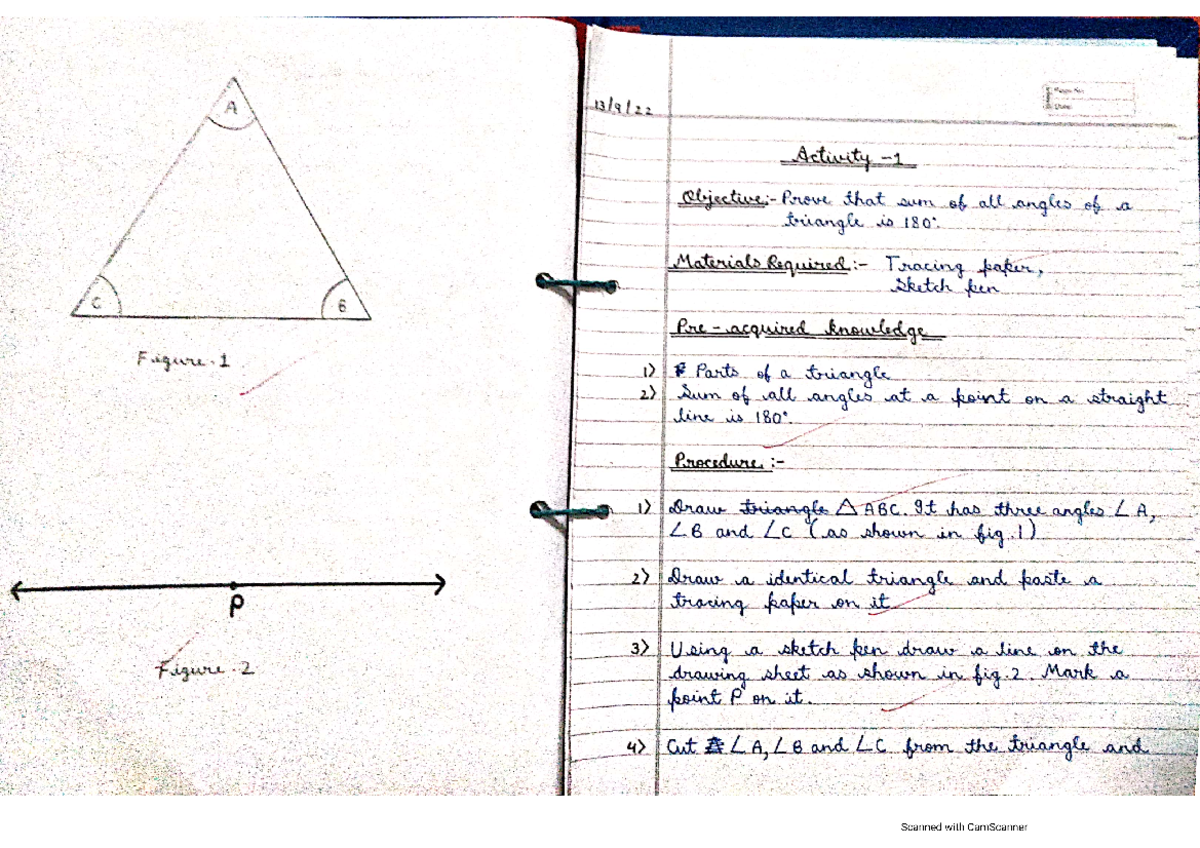 A
C
B
Figure.1
P
Figure.2
13/9/22
Page No.
Date
Activity -1
Objective:- Prove that sum of all angles of a
triangle is 180°.
Materials Required:- Tracing paper,
Sketch pen
Pre-acquired knowledge
1) Parts of a triangle
2) Sum of all angles at a point on a straight
line is 180°.
Procedure:-
1) Draw triangle △ABC. It has three angles ∠A,
∠B and ∠C (as shown in fig.1)
2) Draw a identical triangle and paste a
tracing paper on it
3) Using a sketch pen draw a line on the
drawing sheet as shown in fig.2. Mark a
point P on it.
4) Cut ∠A,∠B and ∠C from the triangle and
Scanned with CamScanner